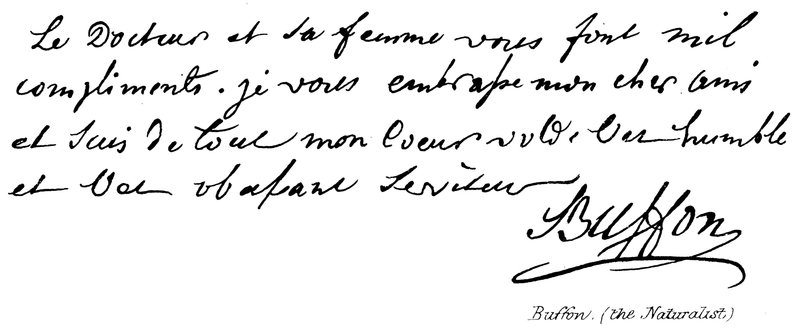 Le Docteur et sa femme vous font mil
compliments. je vous embrasse mon cher ami
et suis de tout mon Coeur humble
et serviteur
Buffon
Buffon. (the Naturalist)